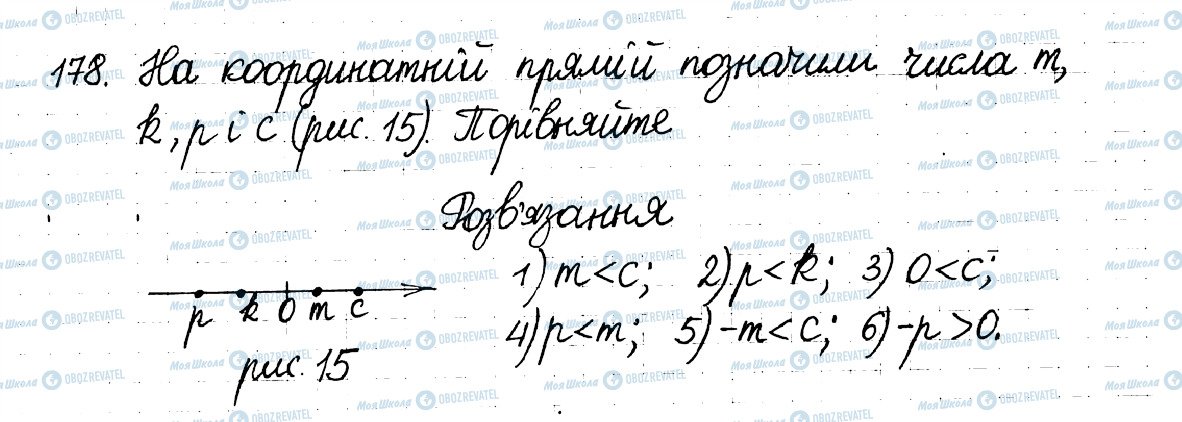 178. На координатній прямій позначили числа m,
k, p і c (рис. 15). Порівняйте
Розв'язання
1) m < c; 2) p < k; 3) 0 < c;
4) p < m; 5) -m < c; 6) -p > 0.
p k 0 m c
рис. 15
Моя Школа OBOZREVATEL